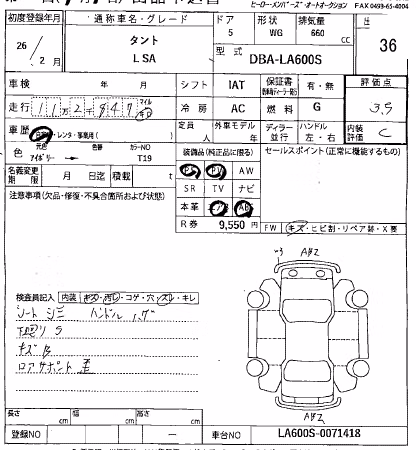 ヒーロー・メンバーズ・オートオークション FAX 0493-65-4004
初度登録年月 通称車名・グレード ドア 形状 排気量 出
26年 2月 タント 5 WG 660 cc 36
L SA 型式 DBA-LA600S
車検 年 月 シフト IAT 保証書 有・無 評価点
走行 マイル 冷房 AC 燃料 G 3.5
車歴 レンタ・事業用 定員 人 外車モデル 年 ディーラー 並行 ハンドル 左・右 内装評価 C
色 元色 アイボリー → 色替 カラーNO T19
装備品(純正品に限る) セールスポイント(正常に機能するもの)
PS PW AW
名義変更期限 月 日迄 積載 t SR TV ナビ
注意事項(欠品・修復・不具合箇所および状態) 本革 エアB AB
R券 9,550 円
FW キズ・ヒビ割・リペア跡・X要
検査員記入 内装 キズ・汚レ・コゲ・穴・スレ・キレ
シート シミ ハンドル
下廻り S
キズ B
ロアサポート 歪
ABZ
ABZ
長さ cm 幅 cm 高さ cm
登録NO — 車台NO LA600S-0071418